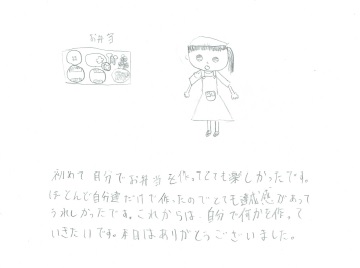 お弁当
初めて自分でお弁当を作ってとても楽しかったです。
ほとんど自分達だけで作ったのでとても達成感があって
うれしかったです。これからは、自分で何かを作って
いきたいです。本日はありがとうございました。